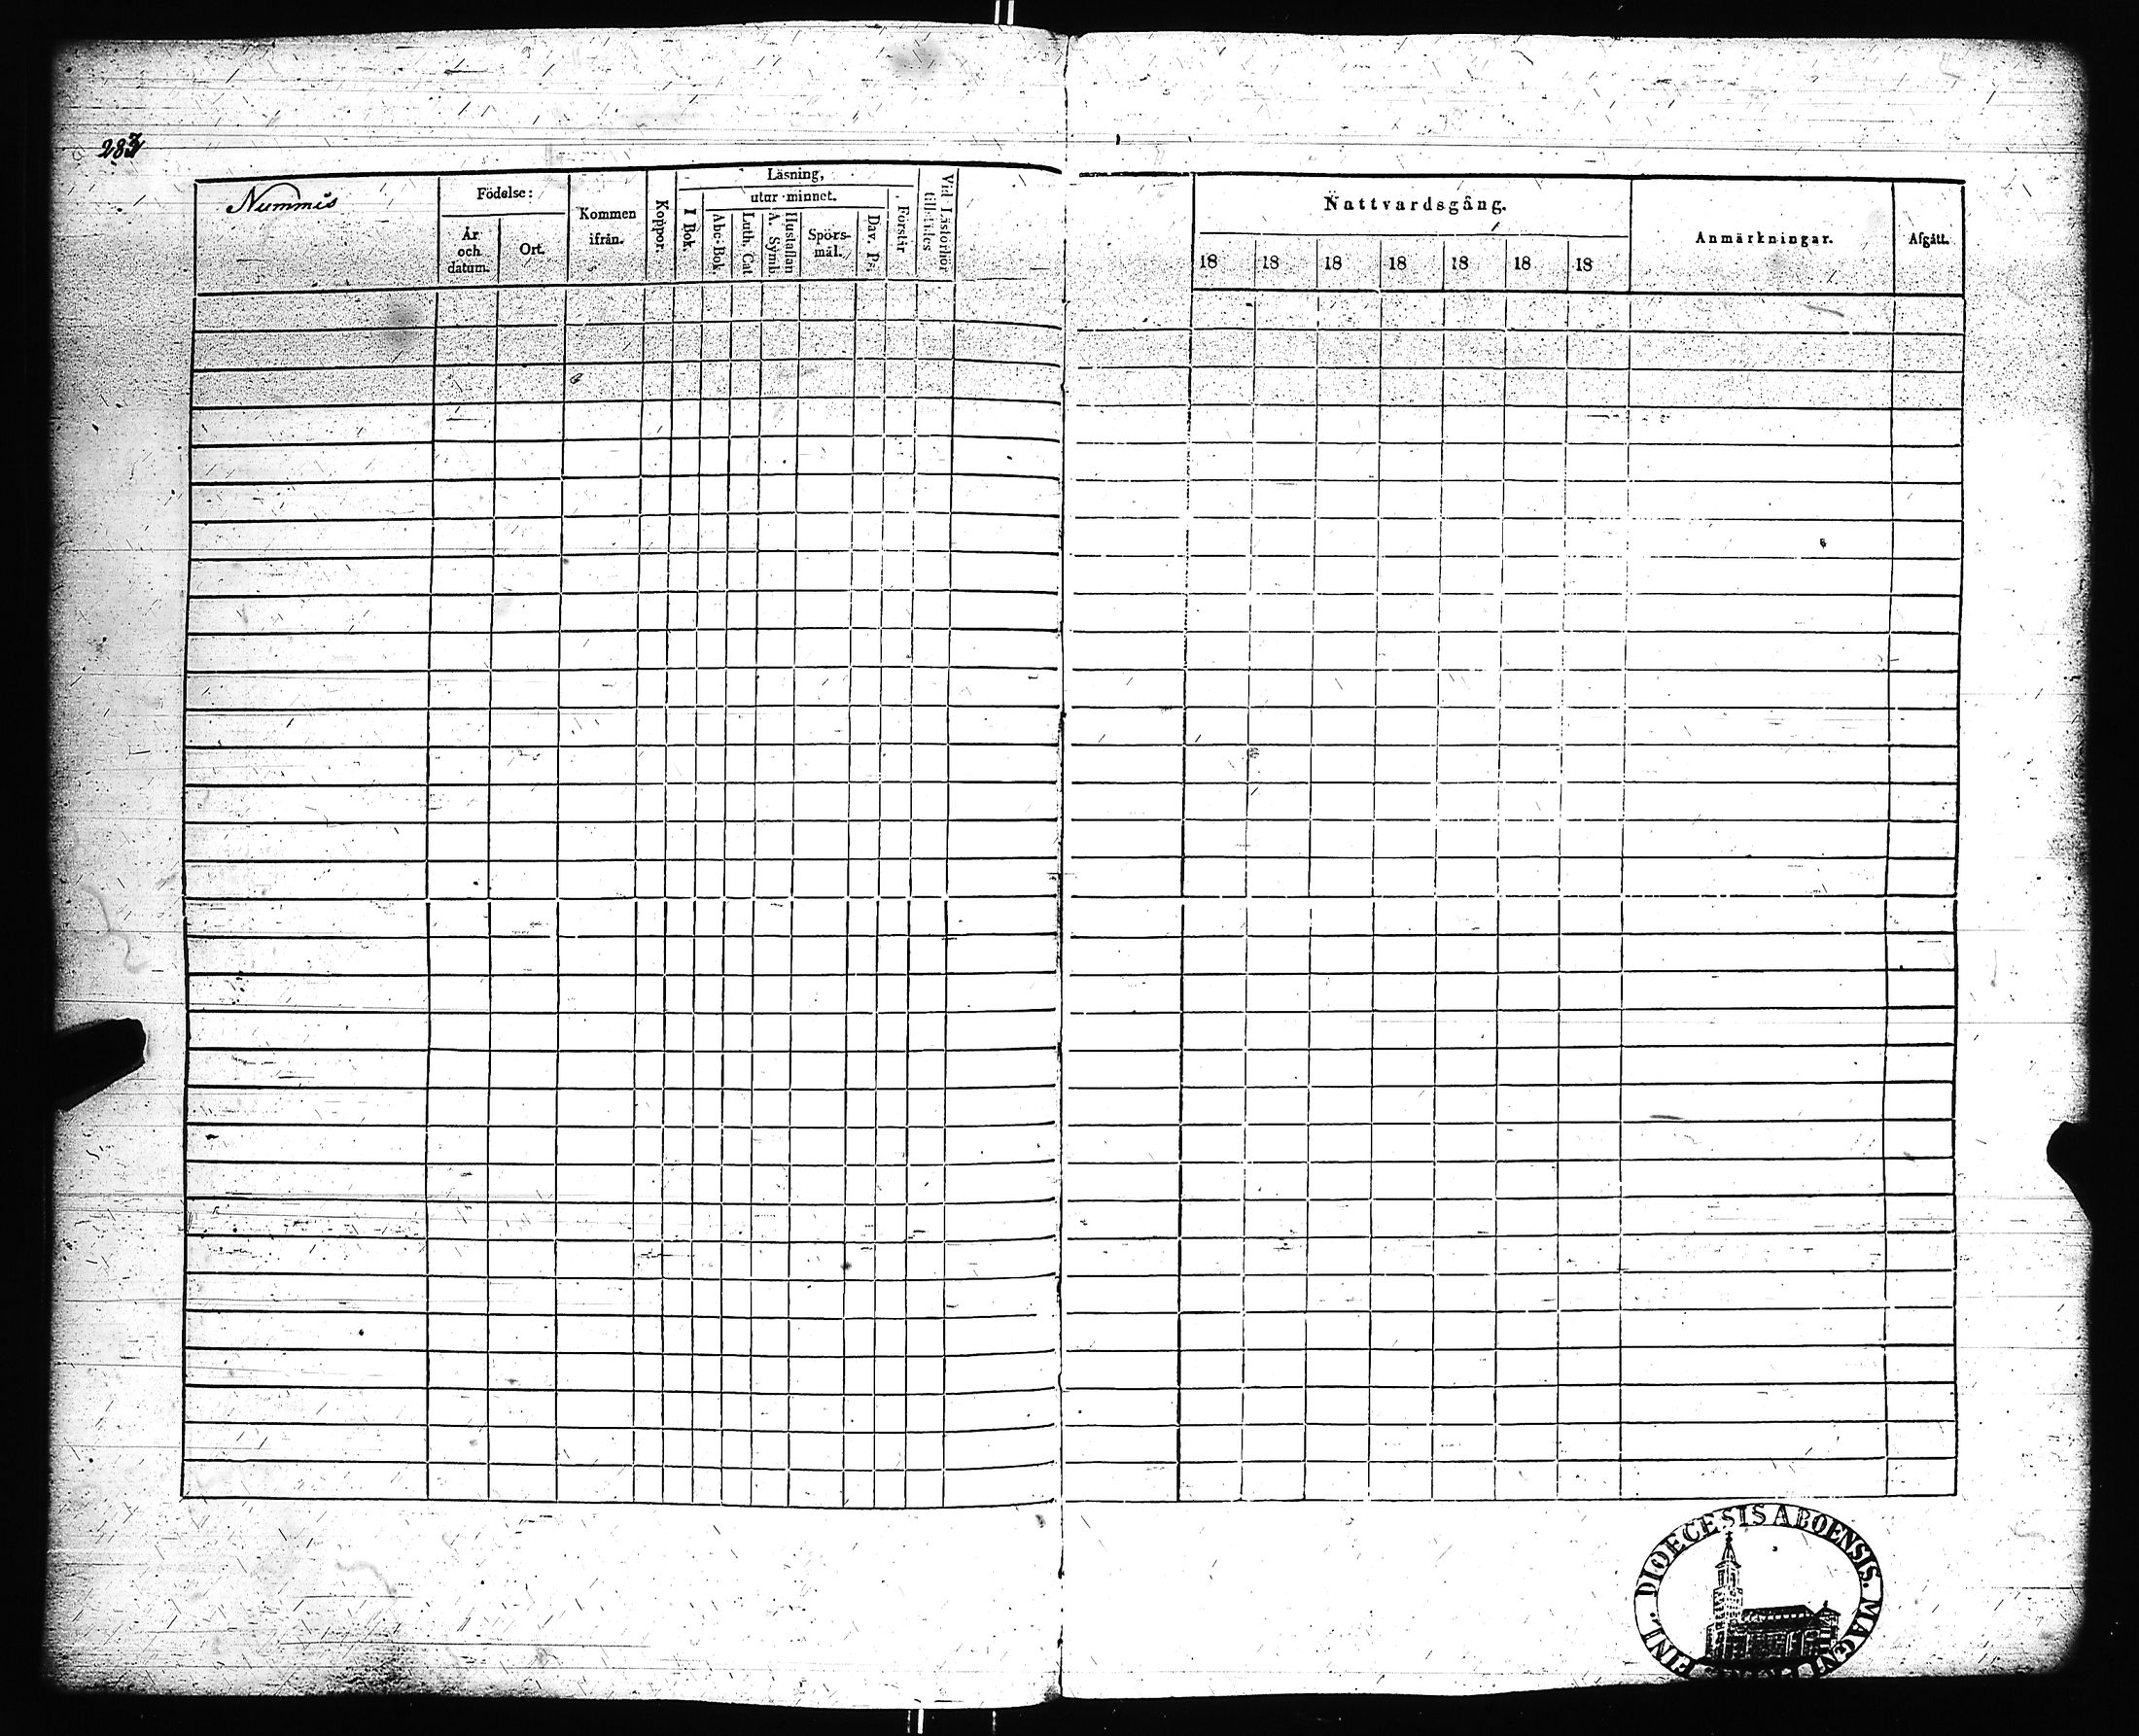 Nummis
Födelse:
År
och
datum.
Ort.
Kommen
ifrån.
Koppor.
Läsning,
utar minnet.
I Bok.
Abc-Bok
Luth. Cat.
A. Symb.
Hustaflan
Spörs-
mål.
Dav. Ps.
Förstår
Vid Läsförhör
Nattvardsgång.
18 18 18 18 18 18 18
Anmärkningar.
Afgått.
DIOECESIS ABOENSIS.